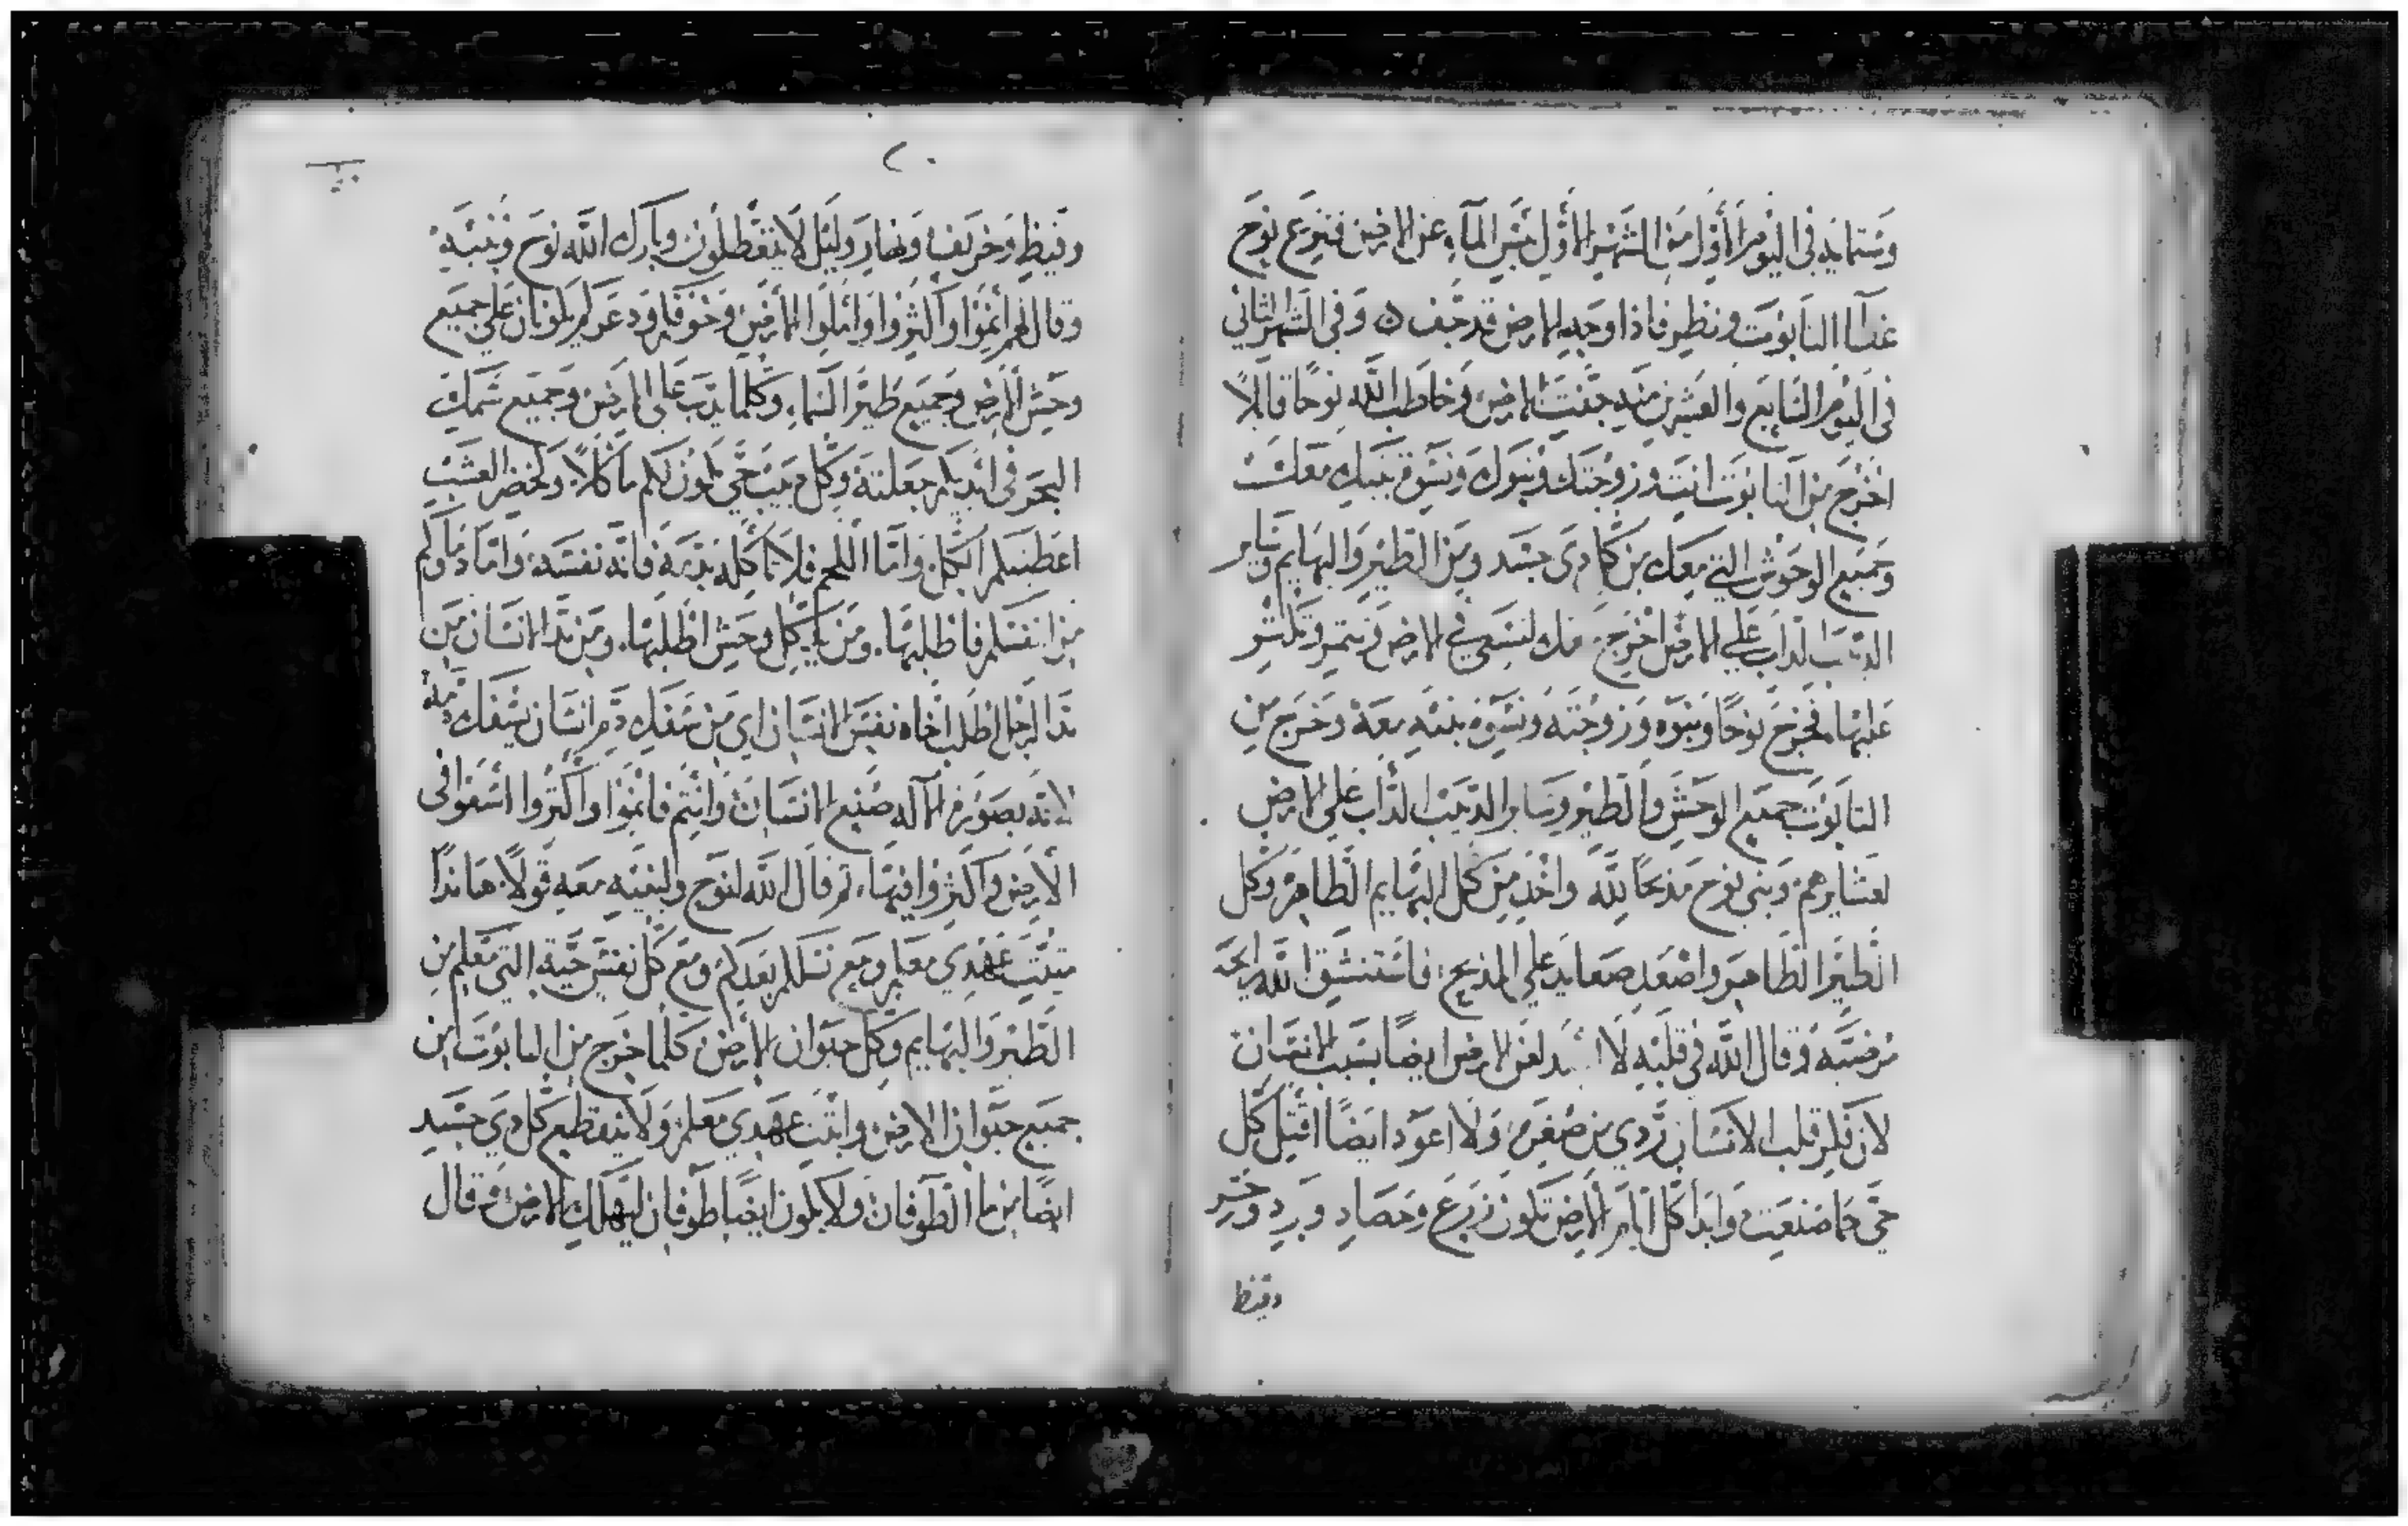 وستمايه في اليوم الأول من الشهر الأول نشف الماء عن الارض فنزع نوح
غطاا التابوت ونظر فاذا وجه الارض قد جف ۞ وفي الشهر الثاني
في اليوم السابع والعشرين منه جفت الارض وخاطب الله نوحًا قايلاً
اخرج من التابوت انت وزوجتك وبنوك ونسوة بنيك معك
وجميع الوحوش التي معك من كل ذي جسد ومن الطير والبهايم وساير
الدبيب الداب علي الارض اخرج معك لتسعي في الارض وتنمو وتكثر
عليها فخرج نوحًا وبنوه وزوجته ونسوة بنيه معه وخرج من
التابوت جميع الوحش والطير وساير الدبيب الداب علي الارض
لعشايرهم وبني نوح مذبحًا لله واخذ من كل البهايم الطاهرة وكل
الطير الطاهر واصعد صعايد علي المذبح فاستنشق الله رايحة
مرضية وقال الله في قلبه لا لعن الارض ايضًا بسبب الانسان
لان فكر قلب الانسان ردي من صغره ولا اعود ايضًا اقتل كل
حي كما صنعت وابدا كل ايام الارض تكون زرع وحصاد وبرد وحر
وقيظ
٢٠
وقيظ وخريف ونهار وليل لا يتعطلون وبارك الله نوح وبنيه
وقال لهم انموا واكثروا واملوا الارض وخوفكم وذعركم يكونان علي جميع
وحش الارض وجميع طير السماء وكلما يدب علي الارض وجميع سمك
البحر في ايديكم جعلته وكل دبيب حي يكون لكم ماكلاً وكخضر العشب
اعطيتكم الكل واما اللحم فلا تاكله بدمه فانه نفسه واما دماوكم
من انفسكم فاطلبها ومن يد كل وحش اطلبها ومن يد الانسان من
يد الرجل اطلب اخاه نفس الانسان اي من سفك دم انسان يسفك دمه
لانه بصورة الاله صنع الانسان وانتم فانموا واكثروا اسعوا في
الارض واكثروا فيها، ثم قال الله لنوح ولبنيه معه قولاً هانذا
مثبت عهدي معكم ومع نسلكم بعدكم ومع كل نفس حية التي معكم من
الطير والبهايم وكل حيوان الارض كلما خرج من التابوت من
جميع حيوان الارض واثبت عهدي معكم ولا ينقطع كل ذي جسد
ايضًا من ما الطوفان ولا يكون ايضًا طوفان ليهلك الارض وقال